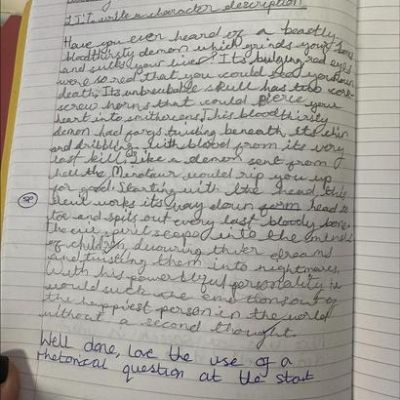 LI: To write a character description
Have you ever heard of a beastly,
bloodthirsty demon which grinds your bones
and sucks your liver? Its bulging red eyes
were so red that you could see your own
death. Its unbreakable skull has two cork
screw horns that could pierce your
heart into smithereens. This bloodthirsty
demon had fangs twisting beneath its chin
and dribbling with blood from its very
last kill. Like a demon sent from
hell the Minotaur would rip you up
for good. Starting with the head, this
devil works its way down form head to
toe and spits out every last bloody bone.
The evil spirit into the minds
of children, devouring thier dreams
and twisting them into nightmares.
With his powerful personality it
would suck the emotions out of
the happiest person in the world
without a second thought.
sp
Well done, love the use of a
rhetorical question at the start